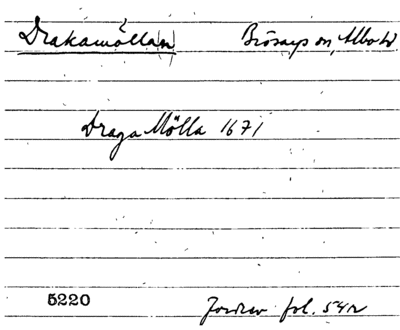 Drakamölla(n) Brösarps sn, Albo hd
Draga Mölla 1671
5220 Jordrev fol. 54r